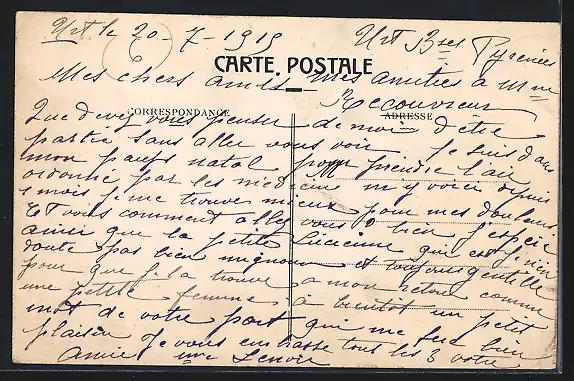 Urt le 20-7-1919 Urt Bses Pyrénées
CARTE POSTALE
Mes chers amis mes amitiés à Mme
Recouvreur
CORRESPONDANCE ADRESSE
Que devez vous penser de moi d'être
partie sans aller vous voir. Je suis dans
mon pays natal pour prendre l'air
ordonné par les médecins m'y voici depuis
1 mois je me trouve mieux pour mes douleurs
Et vous comment allez vous ? bien j'espère
ainsi que la petite Lucienne qui est j'en
doute pas bien mignonne et toujours gentille
pour que je la trouve à mon retour comme
une petite femme à bientôt un petit
mot de votre part qui me fera bien
plaisir Je vous embrasse tout les 3 votre
Amie Mme Lenoir